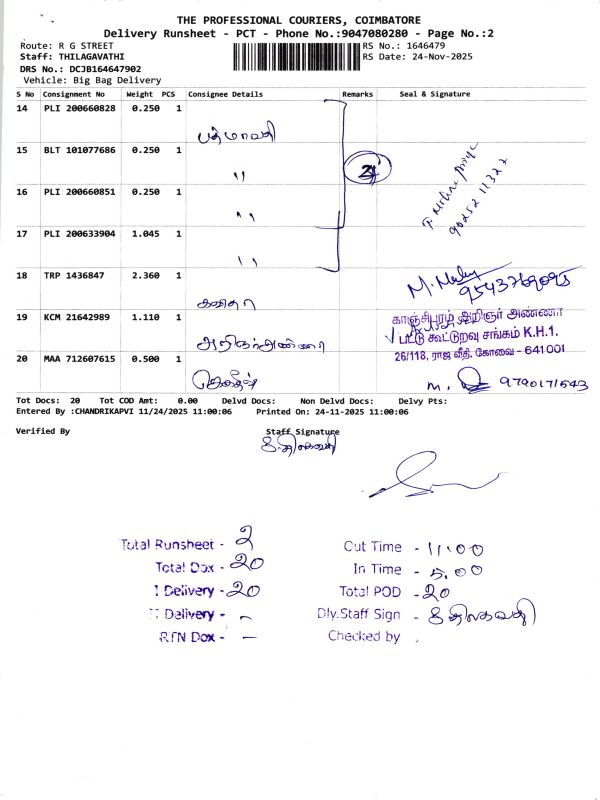 THE PROFESSIONAL COURIERS, COIMBATORE
Delivery Runsheet - PCT - Phone No.:9047080280 - Page No.:2
Route: R G STREET RS No.: 1646479
Staff: THILAGAVATHI RS Date: 24-Nov-2025
DRS No.: DCJB164647902
Vehicle: Big Bag Delivery
S No Consignment No Weight PCS Consignee Details Remarks Seal & Signature
14 PLI 200660828 0.250 1 பத்மாவதி
15 BLT 101077686 0.250 1 ''
16 PLI 200660851 0.250 1 ''
17 PLI 200633904 1.045 1 ''
90252 11322
18 TRP 1436847 2.360 1
9543769095
19 KCM 21642989 1.110 1 அறிஞர் அண்ணா
காஞ்சிபுரம் அறிஞர் அண்ணா
பட்டு கூட்டுறவு சங்கம் K.H.1.
26/118, ராஜ வீதி, கோவை - 641001
20 MAA 712607615 0.500 1
9790171543
Tot Docs: 20 Tot COD Amt: 0.00 Delvd Docs: Non Delvd Docs: Delvy Pts:
Entered By :CHANDRIKAPVI 11/24/2025 11:00:06 Printed On: 24-11-2025 11:00:06
Verified By Staff Signature
திலகவதி
Total Runsheet - 2 Out Time - 11:00
Total Dox - 20 In Time - 5.00
I Delivery - 20 Total POD - 20
II Delivery - - Dly.Staff Sign - திலகவதி
RTN Dox - - Checked by -